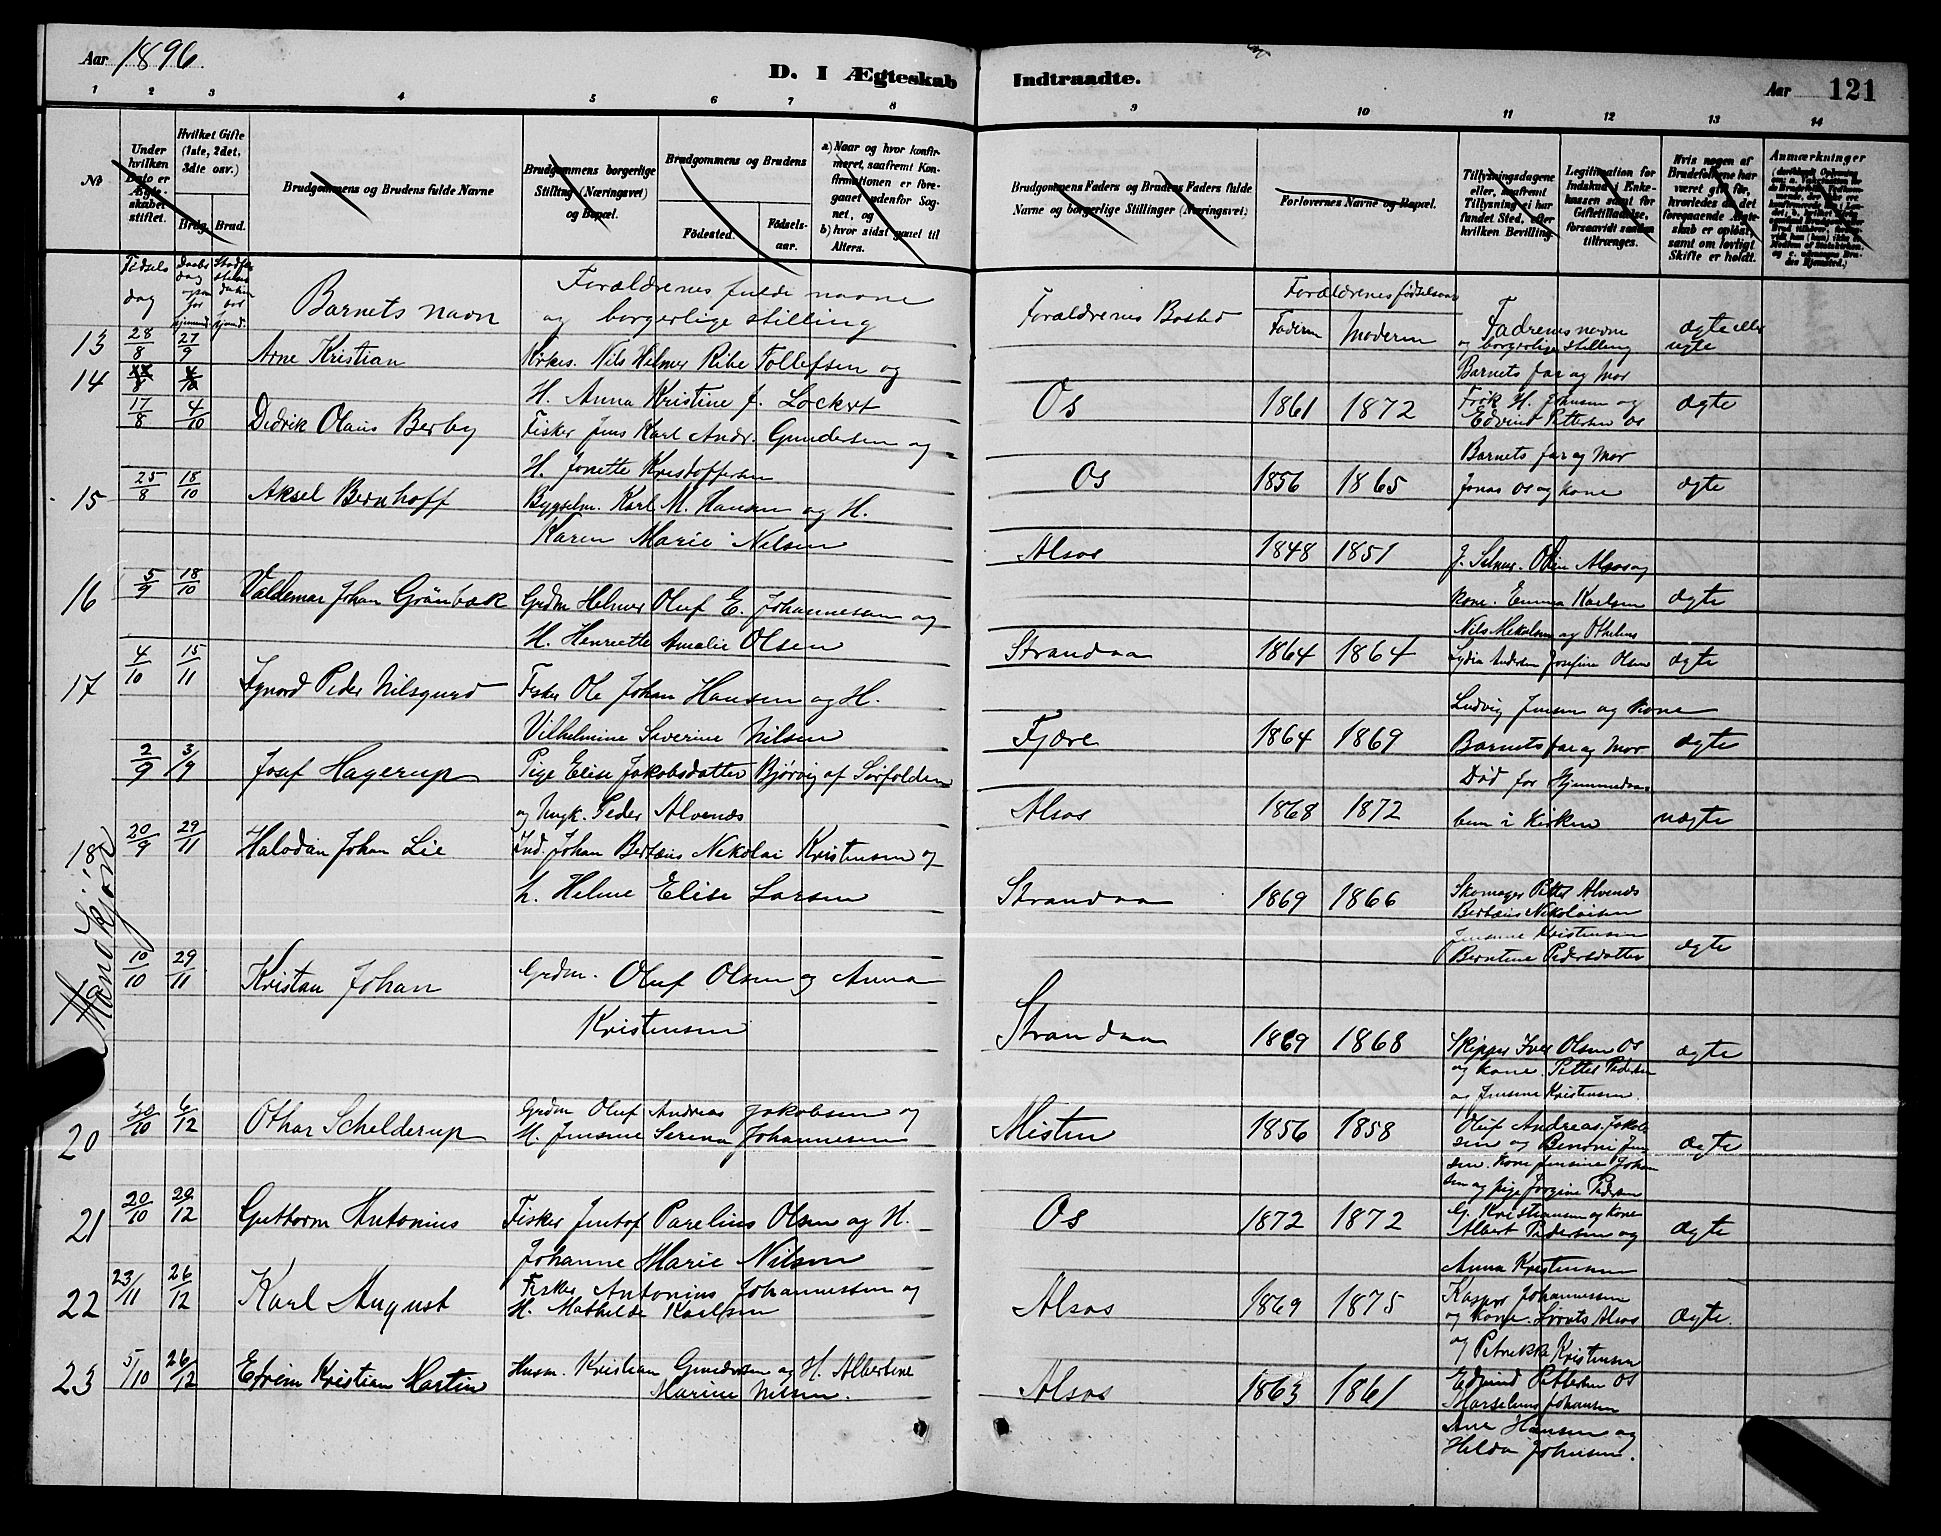 Aar 1896.
D. I Ægteskab Indtraadte.
Aar 121
1 2 3 4 5 6 7 8 9 10 11 12 13 14
No
Under hvilken Dato er Ægteskabet stiftet.
Hvilket Gifte (1ste, 2det, 3die osv.)
Brdg. Brud.
Brudgommens og Brudens fulde Navne
Brudgommens borgerlige Stilling (Næringsvei) og Bopæl.
Brudgommens og Brudens
Fødested. Fødselsaar.
a) Naar og hvor konfirmeret, saafremt Konfirmationen er foregaaet udenfor Sognet, og
b) hvor sidst gaaet til Alters.
Brudgommens Faders og Brudens Faders fulde Navne og borgerlige Stillinger (Næringsvei)
Forlovernes Navne og Bopæl.
Tillysningsdagene eller, saafremt Tillysning ei har fundet Sted, efter hvilken Bevilling
Legitimation for Indskud i Enkekassen samt for Giftetilladelse, forsaavidt saadan tiltrænges.
Hvis nogen af Brudefolkene har været gift før, hvorledes da det foregaaende Ægteskab er opløst, samt om lovligt Skifte er holdt.
Anmærkninger
Fødselsdag
Daabsdag
Barnets navn
Forældrenes fulde navne og borgerlige stilling
Forældrenes Bosted
Forældrenes fødselsaar
Faderen Moderen
Fadrenes navne og borgerlige stilling
ægte eller uægte
13 28/8 27/9 Arne Kristian
Kirkes. Nils Helmer Ribe Tollefsen og
H. Anna Kristine f. Lockert
Os 1861 1872
Barnets far og Mor
H. Johnsen og
Edvind Pettersen Os
ægte
14 4/10
17/8 4/10 Didrik Olaus Berby
Fisker Jens Karl Andr. Gundersen og
H. Jonette Kristoffersen
Os 1856 1865
Barnets far og Mor
Jonas Os og kone
ægte
15 25/8 18/10 Aksel Bernhoff
Bygselm. Karl M. Hansen og H.
Karen Marie Nilsen
Alsos 1848 1851
J. Selmer. Olsen Alsos og
kone. Emma Karlsen
ægte
16 5/9 18/10 Valdemar Johan Grönbæk
Grdm Helmer Oluf E. Johannesen og
H. Henriette Amalie Olsen
Strandaa 1864 1864
Nils Mikalsen og Othelius
Lydia Andersen Josefine Olsen
ægte
17 4/10 15/11 Ignord Peder Nilsgurd
Fisker Ole Johan Hansen og H.
Vilhelmine Severine Nilsen
Fjære 1864 1869
Ludvig Jensen og kone
Barnets far og Mor
ægte
2/9 3/9 Josef Hagerup
Pige Elise Jakobsdatter Bjørvig af Sørfolden
og Ungk. Peder Alvenes
Alsos 1868 1872
Død før Hjemmedaaben i Kirken
uægte
18 20/9 29/11 Halvdan Johan Lie
Ind. Johan Bertæus Nikolai Kristensen og
h. Helene Elise Larsen
Strandaa 1869 1866
Skomager Petter Alvenes
Bertæus Nikolaisen
Jensine Kristensen
Berntine Pedersdatter
ægte
Mandkjøn
19 10/10 29/11 Kristian Johan
Grdm. Oluf Olsen og Anna
Kristensen
Strandaa 1869 1868
Skipper Iver Olsen Os
og kone. Petter Pedersen
og Jensine Kristensen.
ægte
20 20/10 6/12 Othar Schelderup
Grdm Oluf Andreas Jakobsen og
H. Jensine Serena Johannesen
Misten 1856 1858
Oluf Andreas Jakobsen
og Benoni Jensen.
Kone Jensine Johansen
og pige Jorgine Pedersen
ægte
21 20/10 20/12 Guttorm Antonius
Fisker Jentof Parelius Olsen og H.
Johanne Marie Nilsen
Os 1872 1872
G. Kristiansen og Kone
Albert Pedersen og
Anna Kristensen
ægte
22 23/11 26/12 Karl August
Fisker Antonius Johannessen og
H. Mathilde Karlsen
Alsos 1869 1875
Kasper Johannessen
og Kone. Alsos
og Petrikke Kristensen
ægte
23 5/10 26/12 Efrem Kristian Martin
Husm. Kristian Gundersen og H. Albertine
Marine Nilsen.
Alsos 1863 1861
Edvind Pettersen Os
Marselius Johansen
Ane Hansen og
Hilda Johnsen.